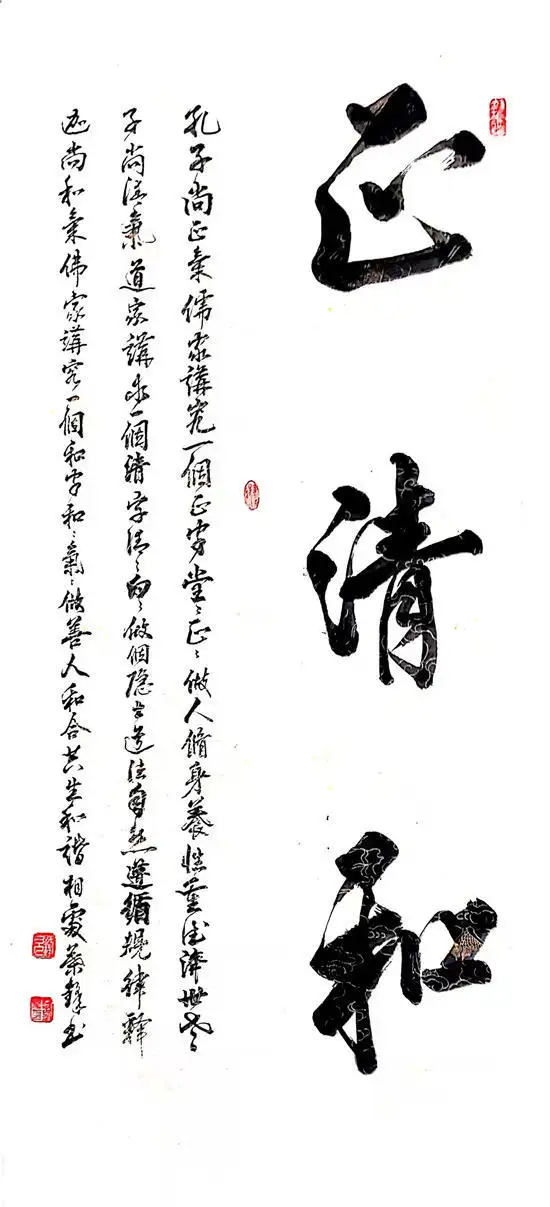 正清和
孔子尚正氣儒家講究一個正字堂〻正〻做人脩身養性重德濟世老
子尚清氣道家講求一個清字清〻白〻做個隐士道法自然遵循規律釋
迦尚和氣佛家講究一個和字和〻氣〻做善人和合共生和諧相處